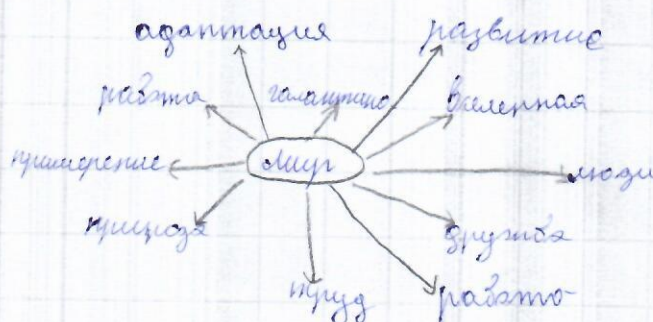 адаптация развитие
работа галактика вселенная
примирение Мир люди
природа дружба
труд работа